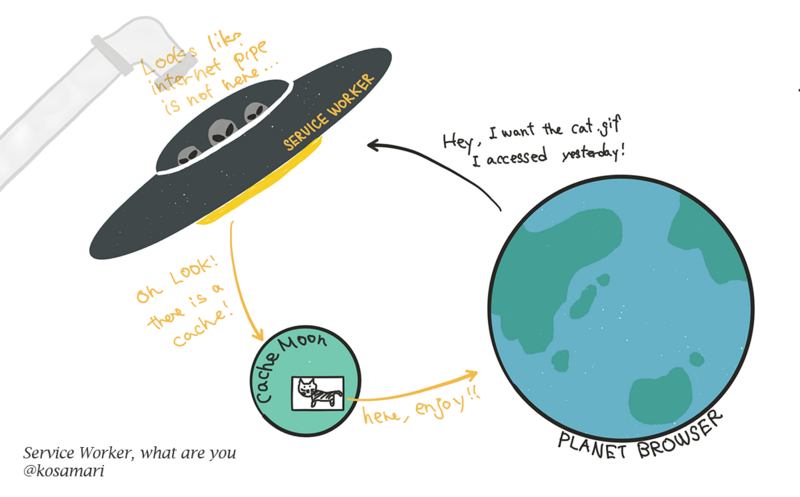 Looks like
internet pipe
is not here...
SERVICE WORKER
Hey, I want the cat.gif
I accessed yesterday!
Oh LOOK!
there is a
cache!
Cache Moon
here, enjoy!!
PLANET BROWSER
Service Worker, what are you
@kosamari